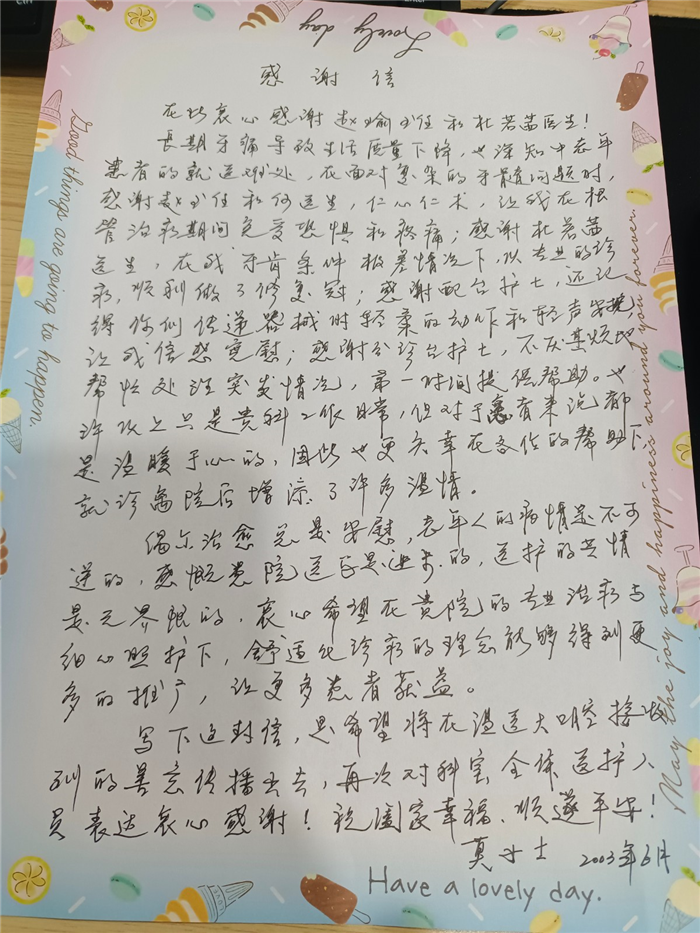 Lovely day
感谢信
在此衷心感谢赵瑜主任和杜若茜医生！
长期牙痛导致生活质量下降，也深知中老年
患者的就医难处，在面对复杂的牙髓问题时，
感谢赵主任和何医生，仁心仁术，让我在根
管治疗期间免受恐惧和疼痛；感谢杜若茜
医生，在我牙齿条件极差情况下，以专业的诊
疗，顺利做了修复冠；感谢配台护士，还记
得你们传递器械时轻柔的动作和轻声安抚
让我倍感宽慰；感谢分诊台护士，不厌其烦地
帮忙处理突发情况，第一时间提供帮助。也
许以上只是贵科工作日常，但对于患者来说都
是温暖于心的，因此也更庆幸在各位的帮助下
就诊离院后增添了许多温情。
偶尔治愈总是安慰，老年人的病情是不可
逆的，感慨贵院医学是进步的，医护的共情
是无界限的，衷心希望在贵院的专业治疗与
细心照护下，舒适化诊疗的理念能够得到更
多的推广，让更多患者获益。
写下这封信，是希望将在温医大口腔接收
到的善意传播出去，再次对科室全体医护人
员表达衷心感谢！祝阖家幸福、顺遂平安！
莫女士 2003年6月
Have a lovely day.
Good things are going to happen.
May the joy and happiness around you forever